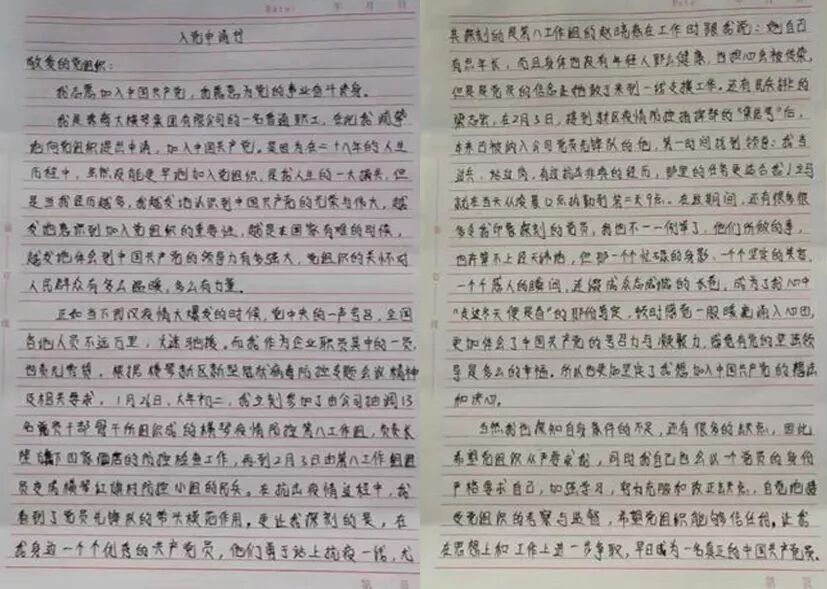 入党申请书
敬爱的党组织：
我志愿加入中国共产党，我愿意为党的事业奋斗终身。
我是珠海大横琴集团有限公司的一名普通职工，在此我
地向党组织提出申请，加入中国共产党。是因为在二十八年的人生
历程中，虽然没能更早地加入党组织，是我人生的一大损失，但
是当我经历越多，我越发地认识到中国共产党的光荣与伟大，越
发地意识到加入党组织的重要性，越是在国家有难的时候，
越发地体会到中国共产党的领导力有多强大，党组织的关怀对
人民群众有多么温暖，多么有力量。
正如当下武汉疫情大爆发的时候，党中央的一声号召，全国
各地人员不远万里，火速驰援。而我作为企业职员其中的一员，
也责无旁贷。根据横琴新区新型冠状病毒防控专题会议精神
及相关要求，1月26日，大年初二，我立刻参加了由公司抽调13
名党员干部骨干所组成的横琴疫情防控第八工作组，负责长
隆 下四家酒店的防控检查工作，再到2月3日由第八工作组组
员变成横琴红旗村防控小组的局头。在抗击疫情过程中，我
看到了党员先锋队的带头模范作用。更让我深刻的是，在
我身边一个个优秀的共产党员，他们勇于站上抗疫一线，尤
其深刻的是第八工作组的赵晓 在工作时跟我说：她自己
有点年长，而且身体也没有年轻人那么健康，也担心会被传染，
但是是党员的信念让她敢于来到一线支援工作。还有民兵排的
梁志宏，在2月3日，接到驻区疫情防控指挥部的“集结号”后，
本来已被纳入公司党员先锋队的他，第一时间找到领导：我当
过兵、站过岗，有过抗击非典的经历，那里的任务更适合我！立马
就在当天从凌晨12点执勤到第二天9点。在此期间，还有很多很
多令我印象深刻的党员，我也不一一例举了，他们所做的事，
也许算不上经天纬地，但那一个个忙碌的身影，一个个坚定的笑容，
一个个感人的瞬间，还凝成众志成城的本色，成为了我心中
“走过冬天便是春”的那份笃定，顿时感觉一股暖流涌入心田，
更加体会了中国共产党的号召力与凝聚力，感觉有党的坚强领
导是多么的幸福。所以也更加坚定了我想加入中国共产党的想法
和决心。
当然我也深知自身条件的不足，还有很多的缺点，因此
希望党组织从严要求我，同时我自己也会以一个党员的身份
严格要求自己，加强学习，努力克服和改正缺点，自觉地接
受党组织的考察与监督，希望党组织能够信任我，让我
在思想上和工作上进一步争取，早日成为一名真正的中国共产党员。